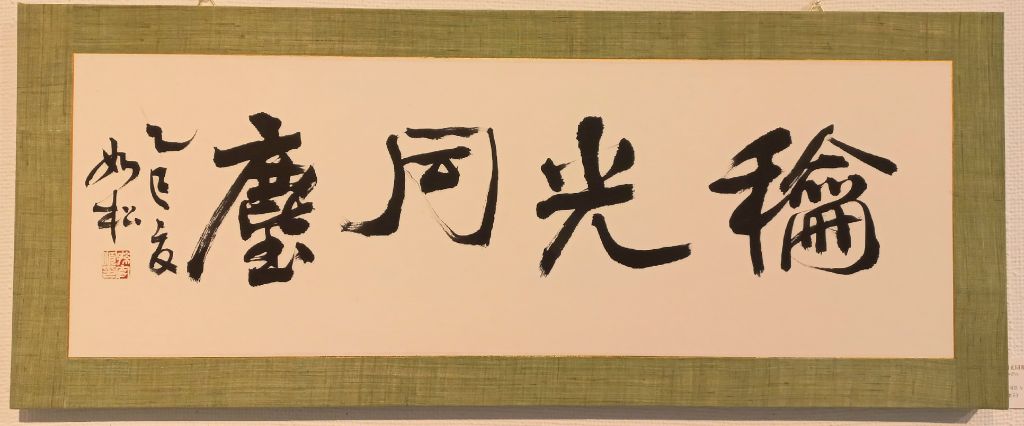 龢光同塵
乙巳夏
如松